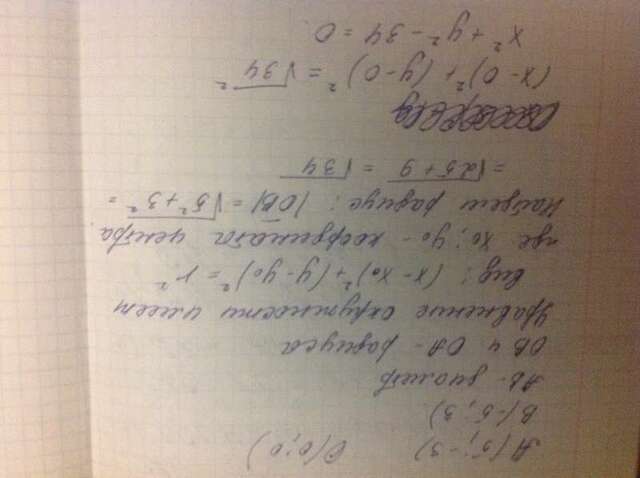 A(5; -3) O(0; 0)
B(-5; 3)
AB - диаметр
OB и OA - радиуса
Уравнение окружности имеет
вид: (x - x₀)² + (y - y₀)² = r²
где x₀; y₀ - координата центра
Найдем радиус: |OB| = √5² + 3² =
= √25 + 9 = √34
(x - 0)² + (y - 0)² = √34²
x² + y² - 34 = 0